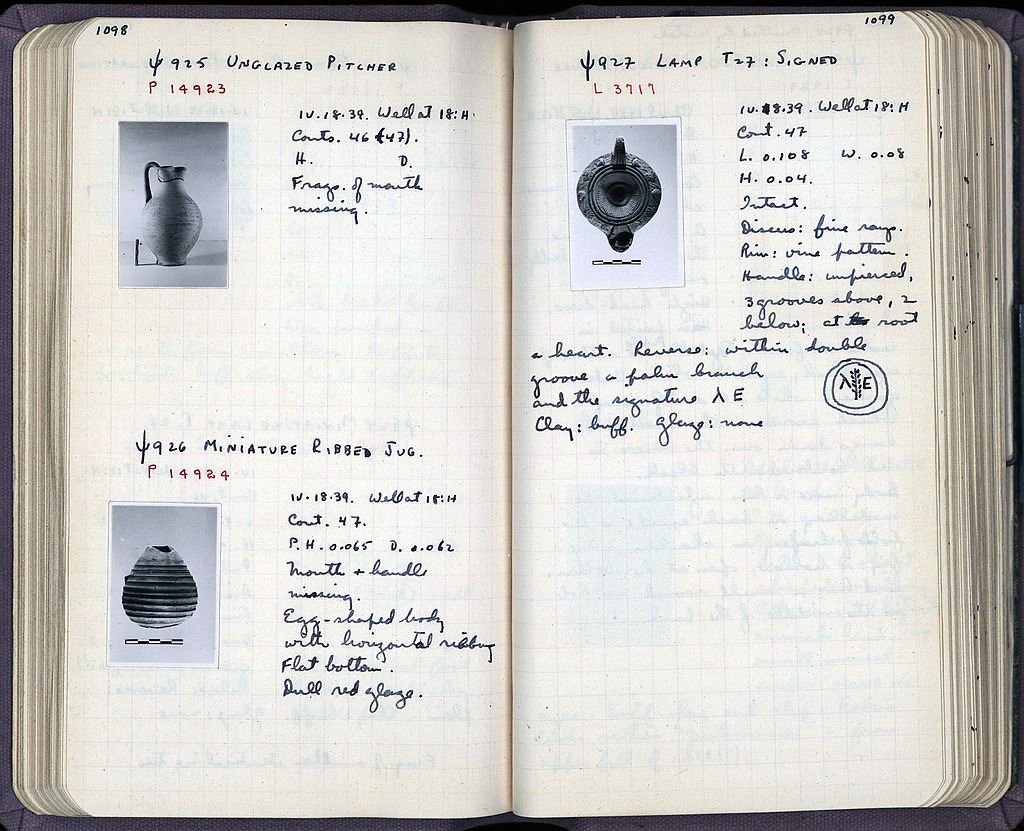 1098
ψ925 UNGLAZED PITCHER
P 14923
IV.18.39. Well at 18:H
Conts. 46 (47).
H. D.
Frags. of mouth
missing.
ψ926 MINIATURE RIBBED JUG.
P 14924
IV.18.39. Well at 18:H
Cont. 47.
P.H. 0.065 D. 0.062
Mouth + handle
missing.
Egg-shaped body
with horizontal ribbing
Flat bottom.
Dull red glaze.
1099
ψ927 LAMP T27: SIGNED
L 3717
IV.18.39. Well at 18:H
Cont. 47
L. 0.108 W. 0.08
H. 0.04.
Intact.
Discus: fine rays.
Rim: vine pattern.
Handle: unpierced,
3 grooves above, 2
below; at root
a heart. Reverse: within double
groove a palm branch
and the signature λ E
Clay: buff. Glaze: none
λ E